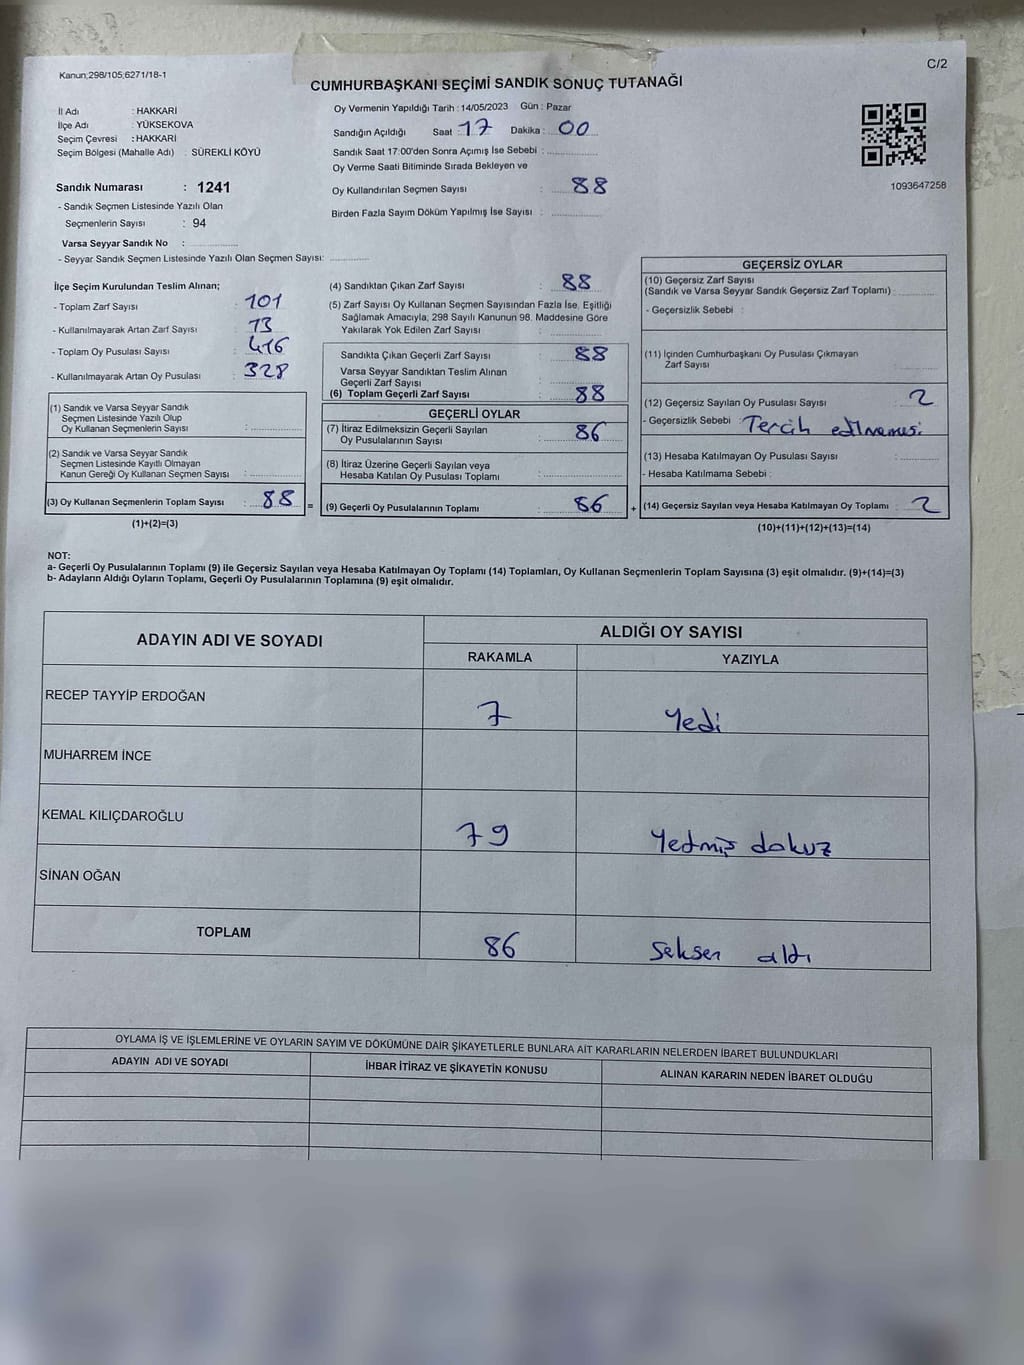 C/2
Kanun;298/105;6271/18-1
CUMHURBAŞKANI SEÇİMİ SANDIK SONUÇ TUTANAĞI
İl Adı : HAKKARİ
İlçe Adı : YÜKSEKOVA
Seçim Çevresi : HAKKARİ
Seçim Bölgesi (Mahalle Adı) : SÜREKLİ KÖYÜ
Sandık Numarası : 1241
- Sandık Seçmen Listesinde Yazılı Olan
Seçmenlerin Sayısı : 94
Varsa Seyyar Sandık No :
- Seyyar Sandık Seçmen Listesinde Yazılı Olan Seçmen Sayısı:
Oy Vermenin Yapıldığı Tarih : 14/05/2023 Gün : Pazar
Sandığın Açıldığı Saat : 17 Dakika : 00
Sandık Saat 17:00'den Sonra Açımış İse Sebebi :
Oy Verme Saati Bitiminde Sırada Bekleyen ve
Oy Kullandırılan Seçmen Sayısı : 88
Birden Fazla Sayım Döküm Yapılmış İse Sayısı :
1093647258
İlçe Seçim Kurulundan Teslim Alınan;
- Toplam Zarf Sayısı : 101
- Kullanılmayarak Artan Zarf Sayısı : 13
- Toplam Oy Pusulası Sayısı : 416
- Kullanılmayarak Artan Oy Pusulası : 328
(1) Sandık ve Varsa Seyyar Sandık
Seçmen Listesinde Yazılı Olup
Oy Kullanan Seçmenlerin Sayısı :
(2) Sandık ve Varsa Seyyar Sandık
Seçmen Listesinde Kayıtlı Olmayan
Kanun Gereği Oy Kullanan Seçmen Sayısı :
(3) Oy Kullanan Seçmenlerin Toplam Sayısı : 88 =
(1)+(2)=(3)
(4) Sandıktan Çıkan Zarf Sayısı : 88
(5) Zarf Sayısı Oy Kullanan Seçmen Sayısından Fazla İse, Eşitliği
Sağlamak Amacıyla; 298 Sayılı Kanunun 98. Maddesine Göre
Yakılarak Yok Edilen Zarf Sayısı :
Sandıkta Çıkan Geçerli Zarf Sayısı : 88
Varsa Seyyar Sandıktan Teslim Alınan
Geçerli Zarf Sayısı :
(6) Toplam Geçerli Zarf Sayısı : 88
GEÇERLİ OYLAR
(7) İtiraz Edilmeksizin Geçerli Sayılan
Oy Pusulalarının Sayısı : 86
(8) İtiraz Üzerine Geçerli Sayılan veya
Hesaba Katılan Oy Pusulası Toplamı :
(9) Geçerli Oy Pusulalarının Toplamı : 86 +
GEÇERSİZ OYLAR
(10) Geçersiz Zarf Sayısı
(Sandık ve Varsa Seyyar Sandık Geçersiz Zarf Toplamı) :
- Geçersizlik Sebebi :
(11) İçinden Cumhurbaşkanı Oy Pusulası Çıkmayan
Zarf Sayısı :
(12) Geçersiz Sayılan Oy Pusulası Sayısı : 2
- Geçersizlik Sebebi : Tercih edilmemesi
(13) Hesaba Katılmayan Oy Pusulası Sayısı :
- Hesaba Katılmama Sebebi :
(14) Geçersiz Sayılan veya Hesaba Katılmayan Oy Toplamı : 2
(10)+(11)+(12)+(13)=(14)
NOT:
a- Geçerli Oy Pusulalarının Toplamı (9) ile Geçersiz Sayılan veya Hesaba Katılmayan Oy Toplamı (14) Toplamları, Oy Kullanan Seçmenlerin Toplam Sayısına (3) eşit olmalıdır. (9)+(14)=(3)
b- Adayların Aldığı Oyların Toplamı, Geçerli Oy Pusulalarının Toplamına (9) eşit olmalıdır.
ADAYIN ADI VE SOYADI
ALDIĞI OY SAYISI
RAKAMLA YAZIYLA
RECEP TAYYİP ERDOĞAN 7 Yedi
MUHARREM İNCE
KEMAL KILIÇDAROĞLU 79 Yetmiş dokuz
SİNAN OĞAN
TOPLAM 86 Seksen altı
OYLAMA İŞ VE İŞLEMLERİNE VE OYLARIN SAYIM VE DÖKÜMÜNE DAİR ŞİKAYETLERLE BUNLARA AİT KARARLARIN NELERDEN İBARET BULUNDUKLARI
ADAYIN ADI VE SOYADI İHBAR İTİRAZ VE ŞİKAYETİN KONUSU ALINAN KARARIN NEDEN İBARET OLDUĞU